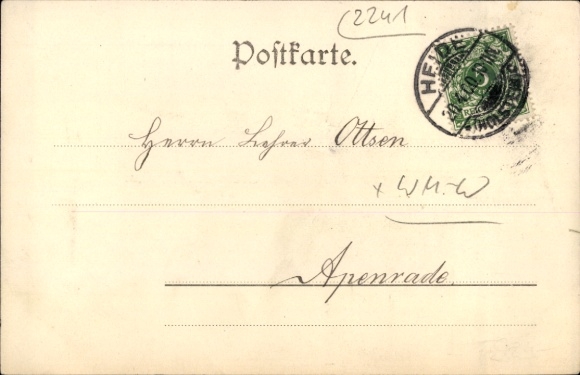 2241
Postkarte.
HEIDE
(HOLSTEIN)
5
Herrn Lehrer Ottsen
Apenrade.